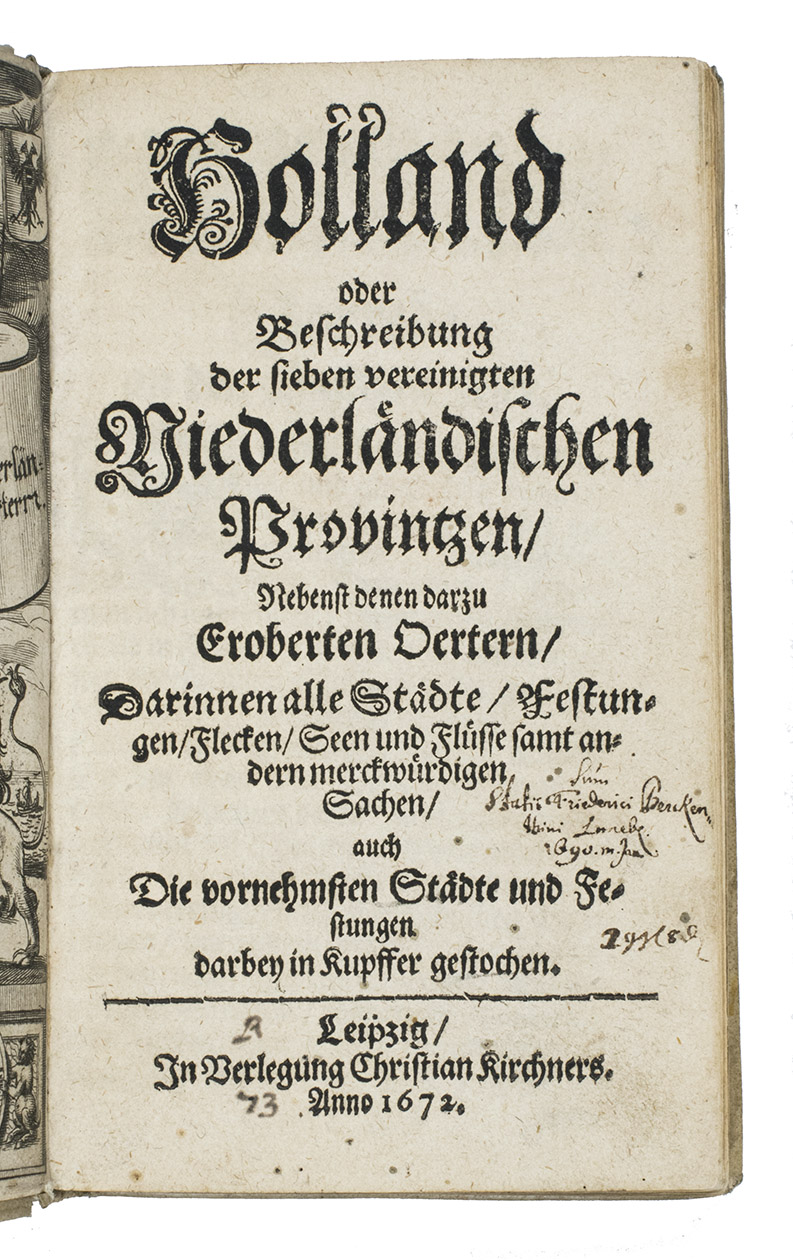 Holland
oder
Beschreibung
der sieben vereinigten
Niederländischen
Provintzen/
Nebenst denen darzu
Eroberten Oertern/
Darinnen alle Städte/ Festun-
gen/Flecken/ Seen und Flüsse samt an-
dern merckwürdigen
Sachen/
auch
Die vornehmsten Städte und Fe-
stungen
darbey in Kupffer gestochen.
Leipzig/
In Verlegung Christian Kirchners.
Anno 1672.
Sum
Friderici
73
erlän-